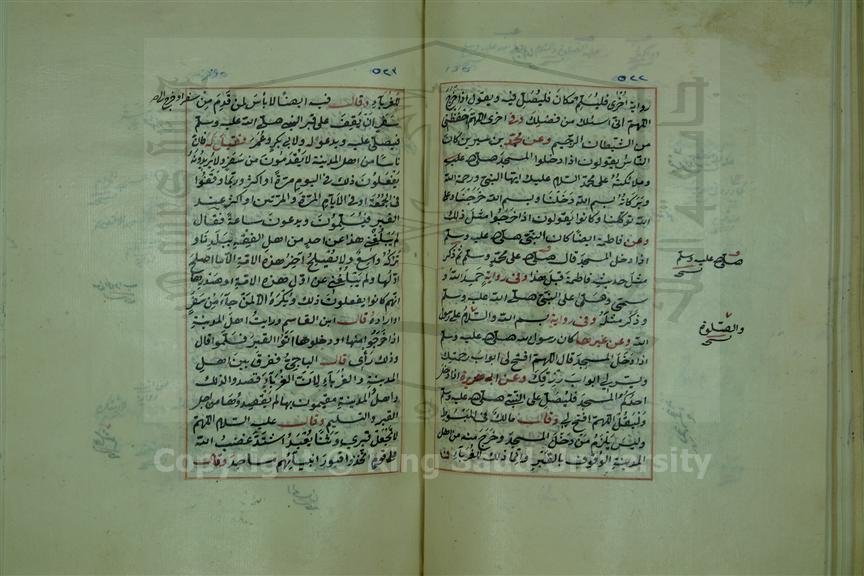 ٥٢٢
رواية اخرى فليسلم مكان فليصل فيه ويقول اذا خرج
اللهم انى اسئلك من فضلك وفى اخرى اللهم احفظنى
من الشيطان الرجيم وعن محمد بن سيرين كان
الناس يقولون اذا دخلوا المسجد صلى الله
وملائكته على محمد السلام عليك ايها النبى ورحمة الله
وبركاته بسم الله دخلنا وبسم الله خرجنا وعلى
الله توكلنا وكانوا يقولون اذا خرجوا مثل ذلك
وعن فاطمة ايضا كان النبى صلى الله عليه وسلم
اذا دخل المسجد قال صلى الله على محمد وسلم ثم ذكر
مثل حديث فاطمة قبل هذا وفى رواية حمد الله و
سمى وصلى على النبى صلى الله عليه وسلم
وذكر مثله وفى رواية بسم الله والسلام على رسول
الله وعن غيرها كان رسول الله صلى الله عليه وسلم
اذا دخل المسجد قال اللهم افتح لى ابواب رحمتك
ويسر لى ابواب رزقك وعن ابى هريرة اذا دخل
احدكم المسجد فليصل على النبى صلى الله عليه وسلم
وليقل اللهم افتح لى وقال مالك فى المبسوط
وليس يلزم من دخل المسجد وخرج منه من اهل
المدينة الوقوف بالقبر وانما ذلك للغرباء
صلى الله عليه وسلم
والصلوة
٥٢٣
للغرباء وقال فيه ايضا لا بأس لمن قدم من سفر او خرج الى
سفر ان يقف على قبر النبى صلى الله عليه وسلم
فيصلى عليه ويدعو له ولابى بكر وعمر فقيل له فان
ناسا من اهل المدينة لا يقدمون من سفر ولا يريدونه
يفعلون ذلك فى اليوم مرة او اكثر وربما وقفوا
فى الجمعة او فى الايام المرة والمرتين او اكثر عند
القبر فيسلمون ويدعون ساعة فقال
لم يبلغنى هذا عن احد من اهل الفقه ببلدنا و
تركه واسع ولا يصلح آخر هذه الامة الا ما اصلح
اولها ولم يبلغنى عن اول هذه الامة وصدرها
انهم كانوا يفعلون ذلك ويكره الا لمن جاء من سفر
او اراده قال ابن القاسم ورأيت اهل المدينة
اذا خرجوا منها او دخلوها اتوا القبر فسلموا قال
وذلك رأى قال الباجى ففرق بين اهل
المدينة والغرباء لان الغرباء قصدوا لذلك
واهل المدينة مقيمون بها لم يقصدوها من اجل
القبر والتسليم وقال عليه السلام اللهم
لا تجعل قبرى وثنا يعبد اشتد غضب الله
على قوم اتخذوا قبور انبيائهم مساجد وقال
Copyright © King Saud University